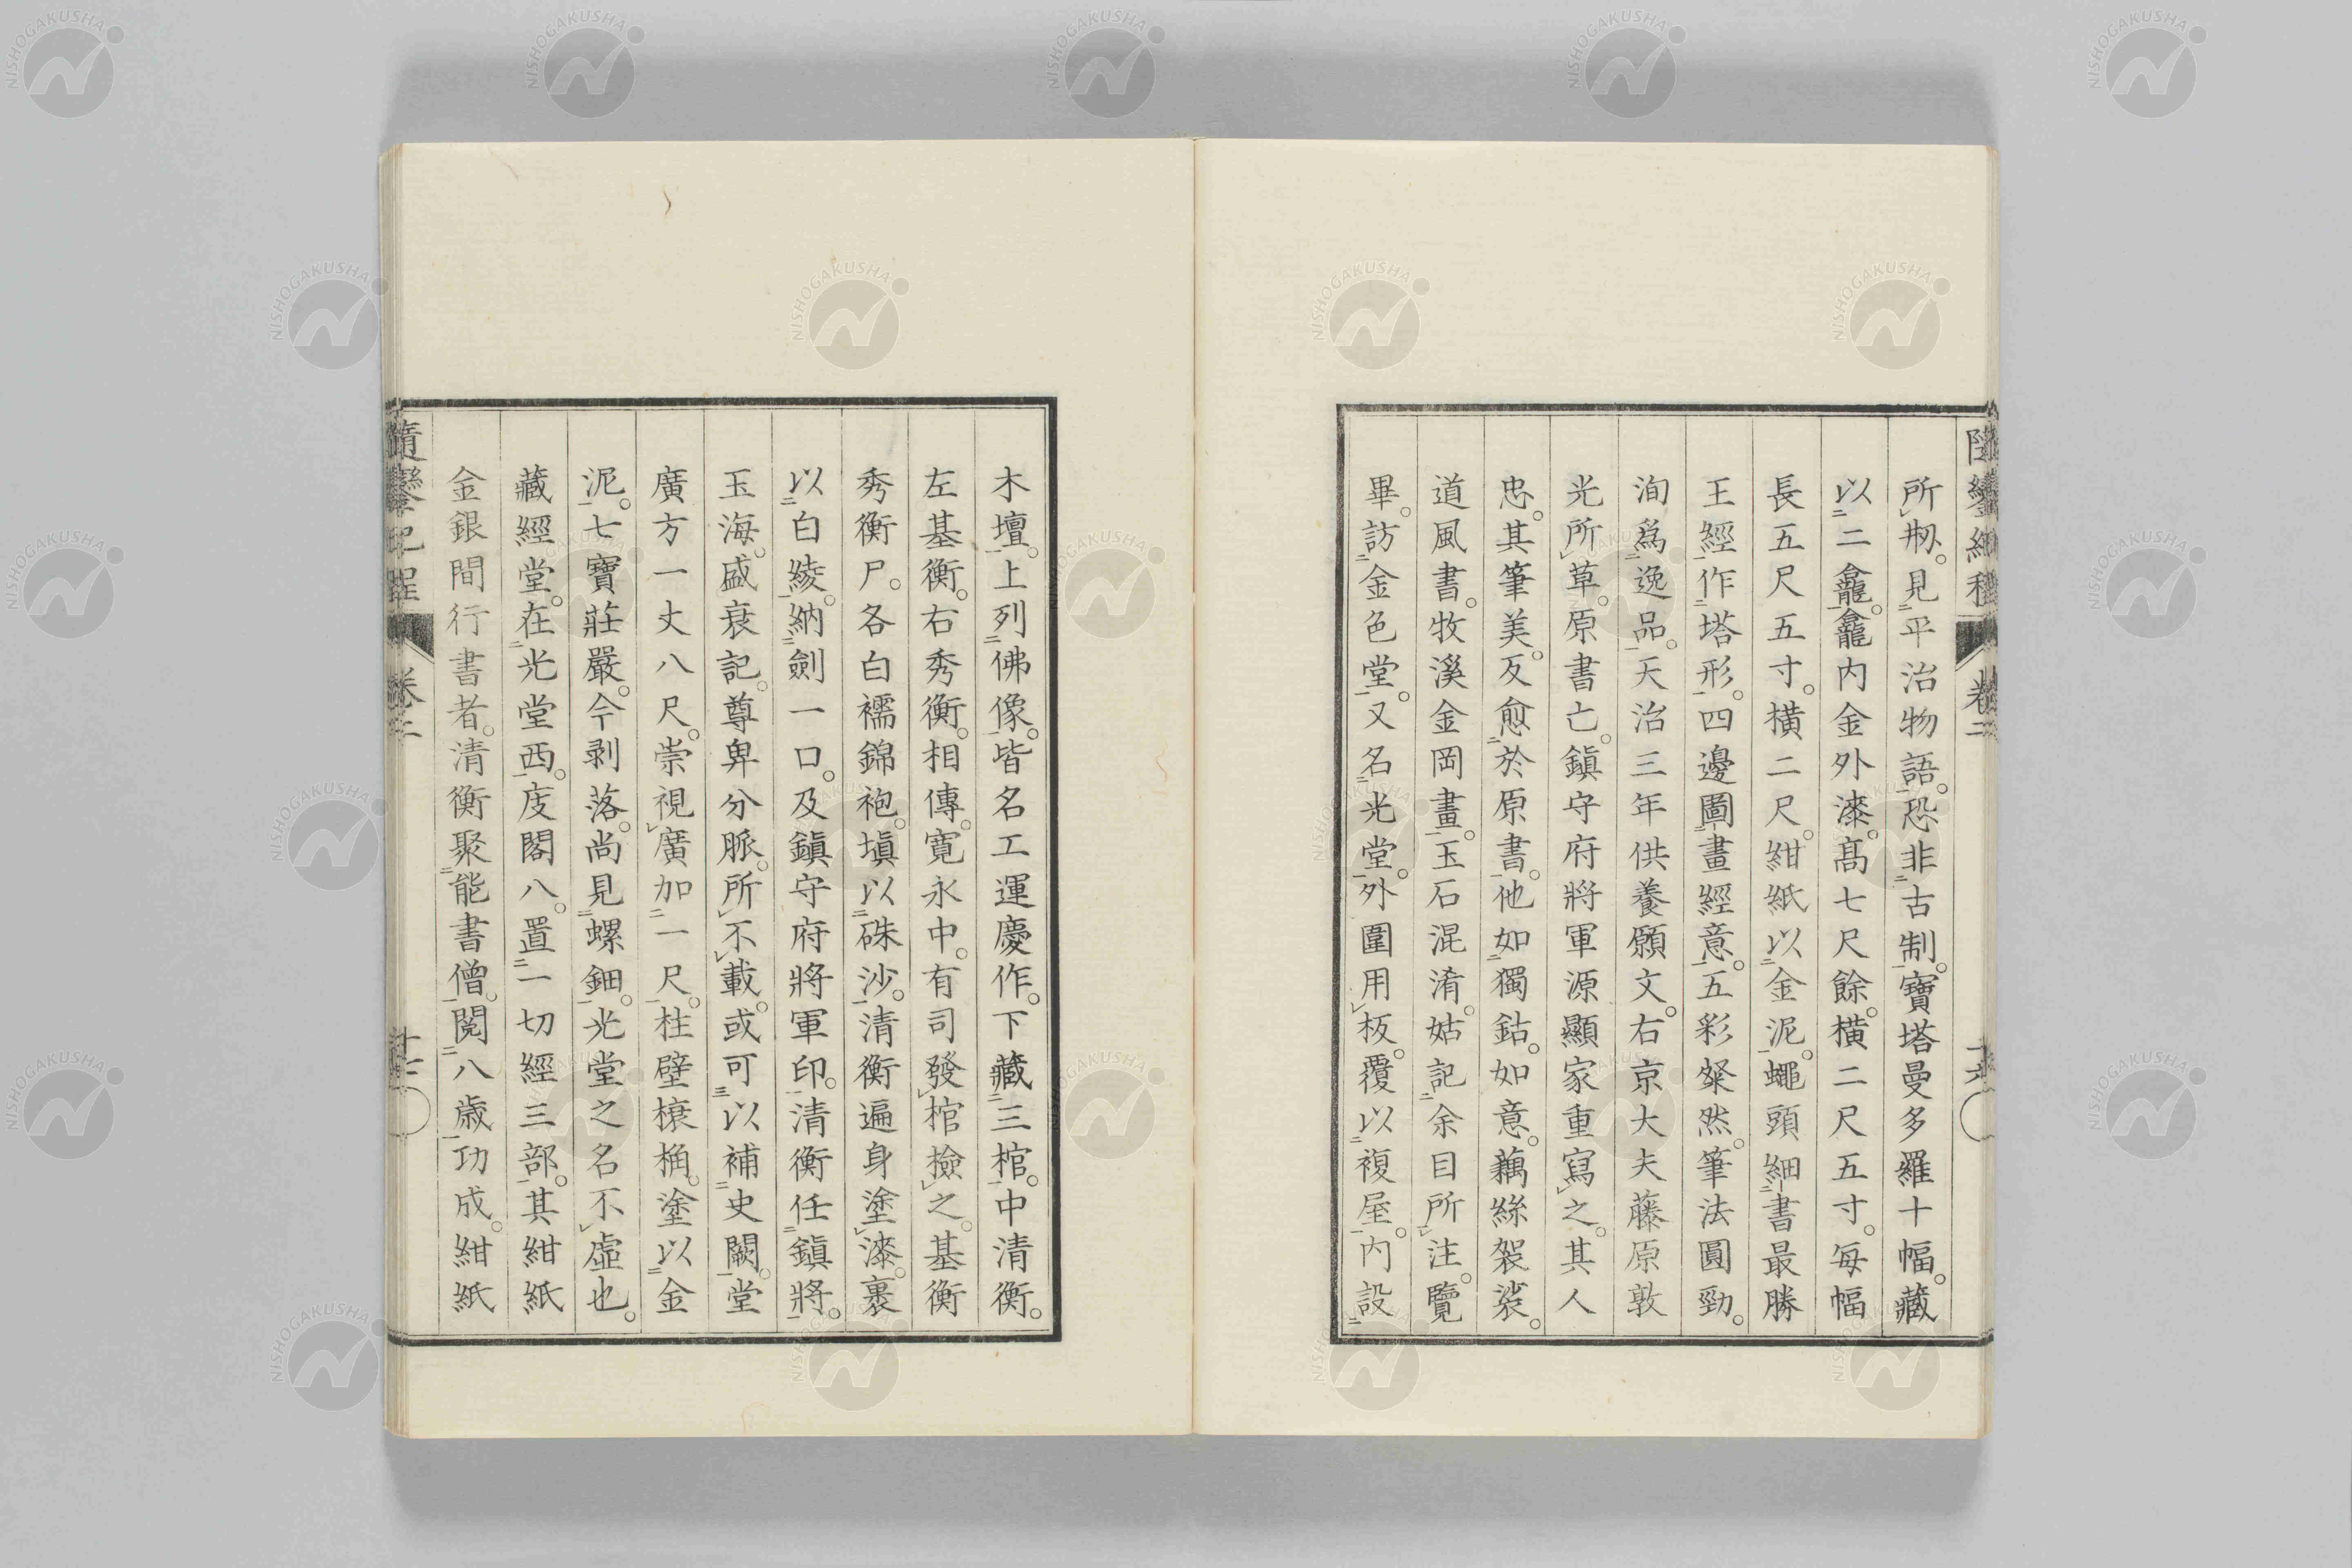 隨鑾紀程 卷二 十六
所刱。見平治物語。恐非古制。寶塔曼多羅十幅。藏
以二龕。龕内金外漆。高七尺餘。橫二尺五寸。每幅
長五尺五寸。橫二尺。紺紙以金泥。蠅頭細書最勝
王經作塔形。四邊圖畫經意。五彩粲然。筆法圓勁。
洵爲逸品。天治三年供養願文。右京大夫藤原敦
光所草。原書亡。鎭守府將軍源顯家重寫之。其人
忠。其筆美。反愈於原書。他如獨鈷。如意。藕絲袈裟。
道風書。牧溪金岡畫。玉石混淆。姑記余目所注。覽
畢。訪金色堂。又名光堂。外圍用板。覆以複屋。内設
木壇。上列佛像。皆名工運慶作。下藏三棺。中清衡。
左基衡。右秀衡。相傳。寛永中。有司發棺撿之。基衡
秀衡尸。各白襦錦袍。塡以硃沙。清衡遍身塗漆。裹
以白綾。納劍一口。及鎭守府將軍印。清衡任鎭將。
玉海。盛衰記。尊卑分脈。所不載。或可以補史闕。堂
廣方一丈八尺。崇視廣加一尺。柱壁榱桷。塗以金
泥。七寶莊嚴。今剥落。尚見螺鈿。光堂之名不虛也。
藏經堂。在光堂西。庋閣八。置一切經三部。其紺紙
金銀間行書者。清衡聚能書僧。閲八歳功成。紺紙
隨鑾紀程 卷二